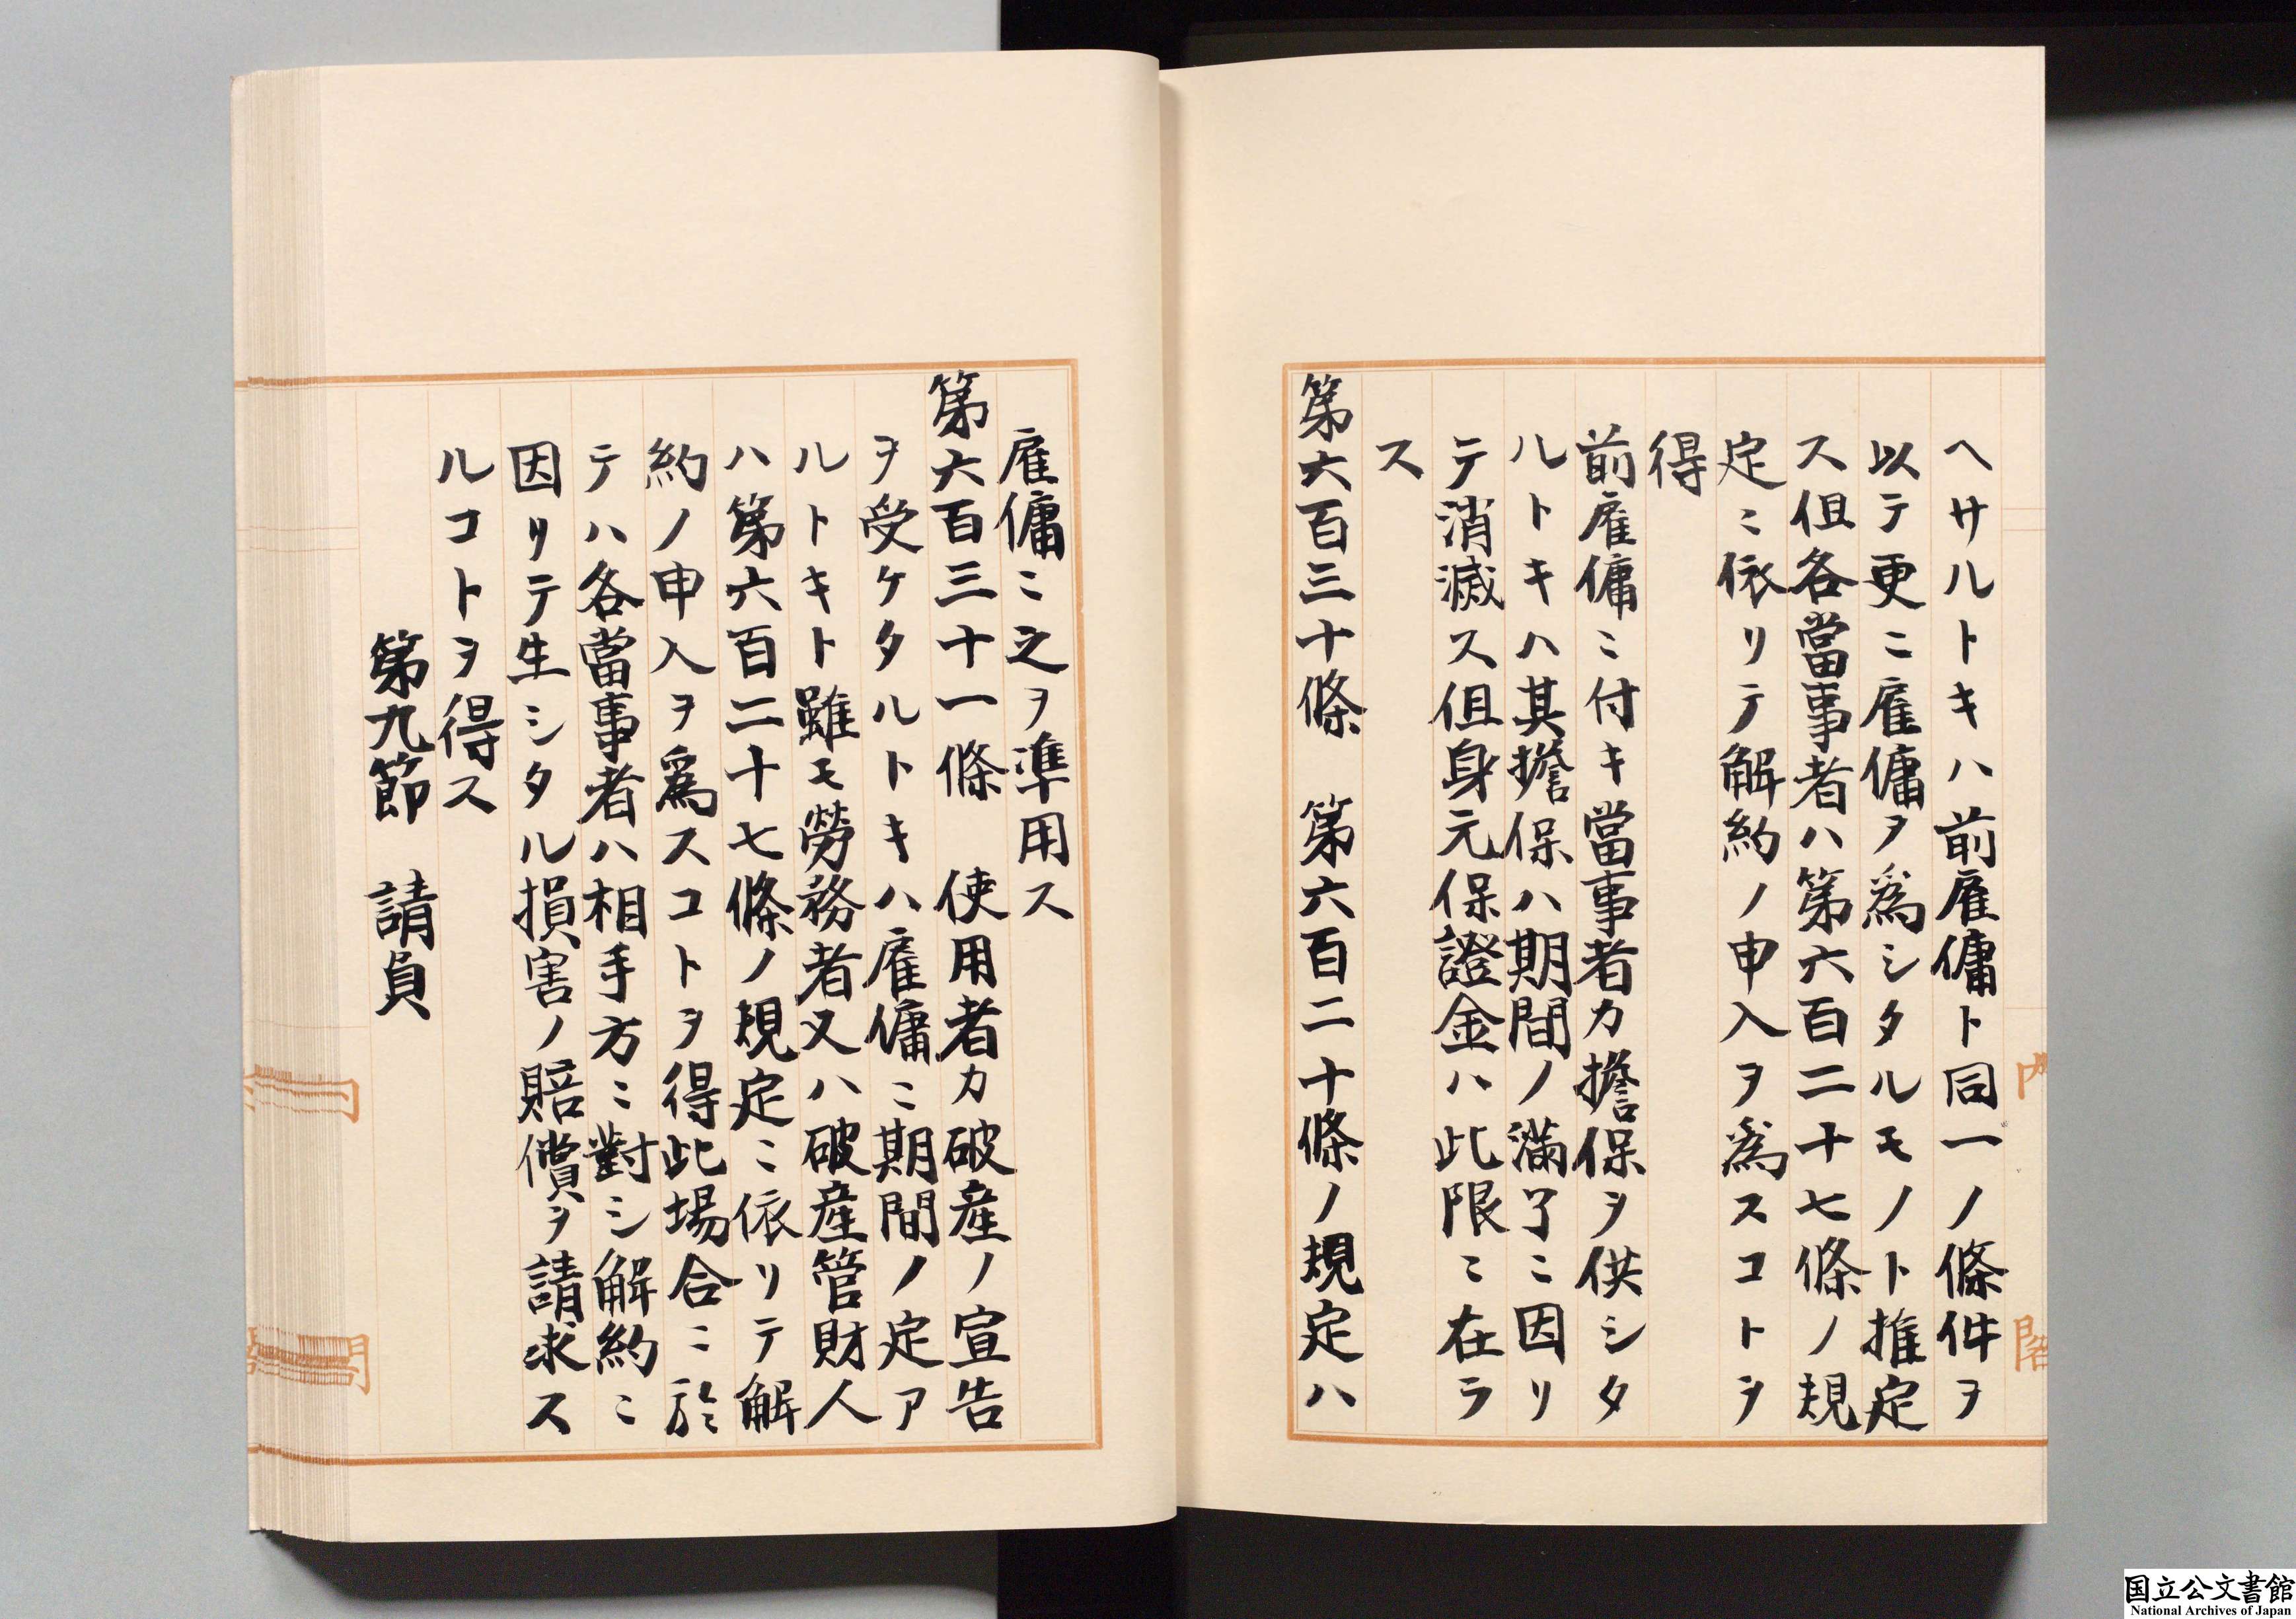 ヘサルトキハ前雇傭ト同一ノ條件ヲ
以テ更ニ雇傭ヲ爲シタルモノト推定
ス但各當事者ハ第六百二十七條ノ規
定ニ依リテ解約ノ申入ヲ爲スコトヲ
得
前雇傭ニ付キ當事者カ擔保ヲ供シタ
ルトキハ其擔保ハ期間ノ滿了ニ因リ
テ消滅ス但身元保證金ハ此限ニ在ラ
ス
第六百三十條　第六百二十條ノ規定ハ
雇傭ニ之ヲ準用ス
第六百三十一條　使用者カ破産ノ宣告
ヲ受ケタルトキハ雇傭ニ期間ノ定ア
ルトキト雖モ勞務者又ハ破産管財人
ハ第六百二十七條ノ規定ニ依リテ解
約ノ申入ヲ爲スコトヲ得此場合ニ於
テハ各當事者ハ相手方ニ對シ解約ニ
因リテ生シタル損害ノ賠償ヲ請求ス
ルコトヲ得ス
第九節　請負
国立公文書館
National Archives of Japan